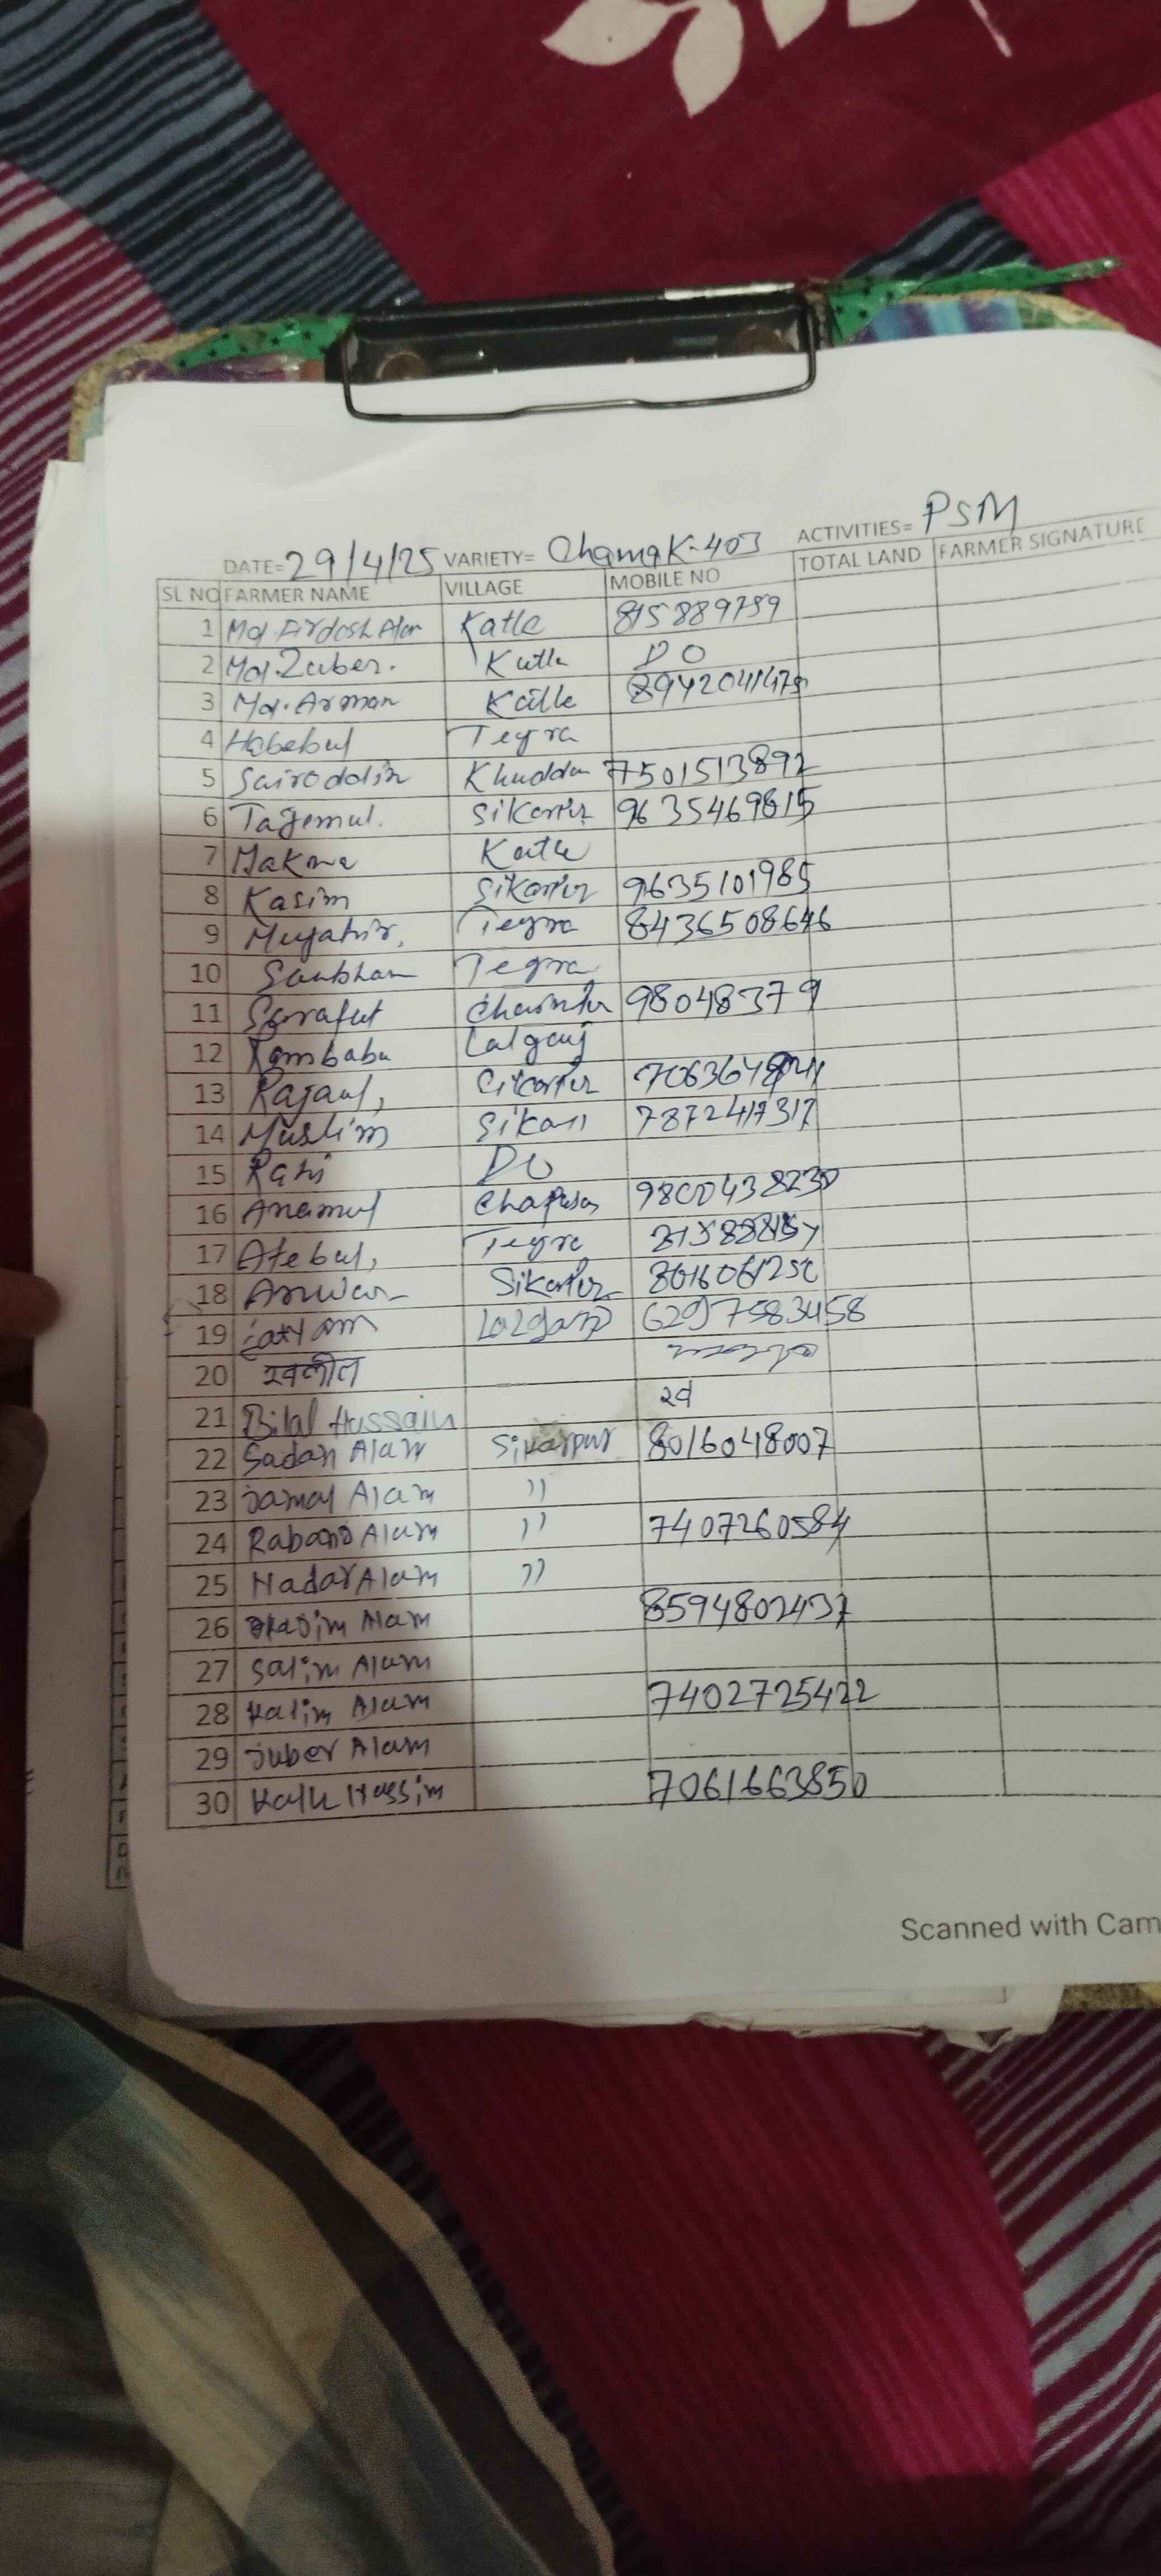 ACTIVITIES= PSM
DATE= 29/4/25 VARIETY= Chamak-403
SL NO FARMER NAME VILLAGE MOBILE NO TOTAL LAND FARMER SIGNATURE
1 Md. Firdosh Alam Katle 815889759
2 Md. Zuber. Katle DO
3 Md. Arman Katle
4 Habebul Teyra
5 Sairoddin Khuddan 7501513892
6 Tajemul. Sikarpur 9635469815
7 Katle
8 Kasim Sikarpur 9635101985
9 Mujahir, Teyra 8436508646
10 Saubhan Teyra
11 Sarafut 980483779
12 Rambabu Lalganj
13 Rajaul, Sikarpur
14 Muslim Sikari 7872417317
15 Rahi DO
16 Anamul 9800438230
17 Atebul, Teyra
18 Anwar Sikarpur
19 Lalganj 6297583458
20
21 Bilal Hussain
22 Sadan Alam Sikarpur 8016048007
23 Jamal Alam "
24 Alam " 7407260584
25 Nadar Alam "
26 Alam 8594802437
27 Salim Alam
28 Kalim Alam 7402725422
29 Juber Alam
30 Kalu Hassim 7061663850
Scanned with Cam